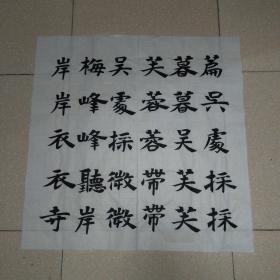 篇呉處採採
暮暮吴芙芙
芙蓉蓉帶帶
吴處採微微
梅峰峰聽岸
岸岸衣衣寺